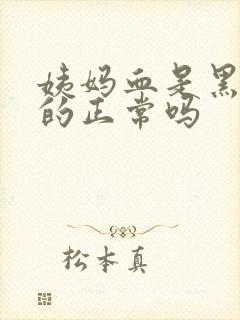 姨妈血是黑
的正常吗
松本真